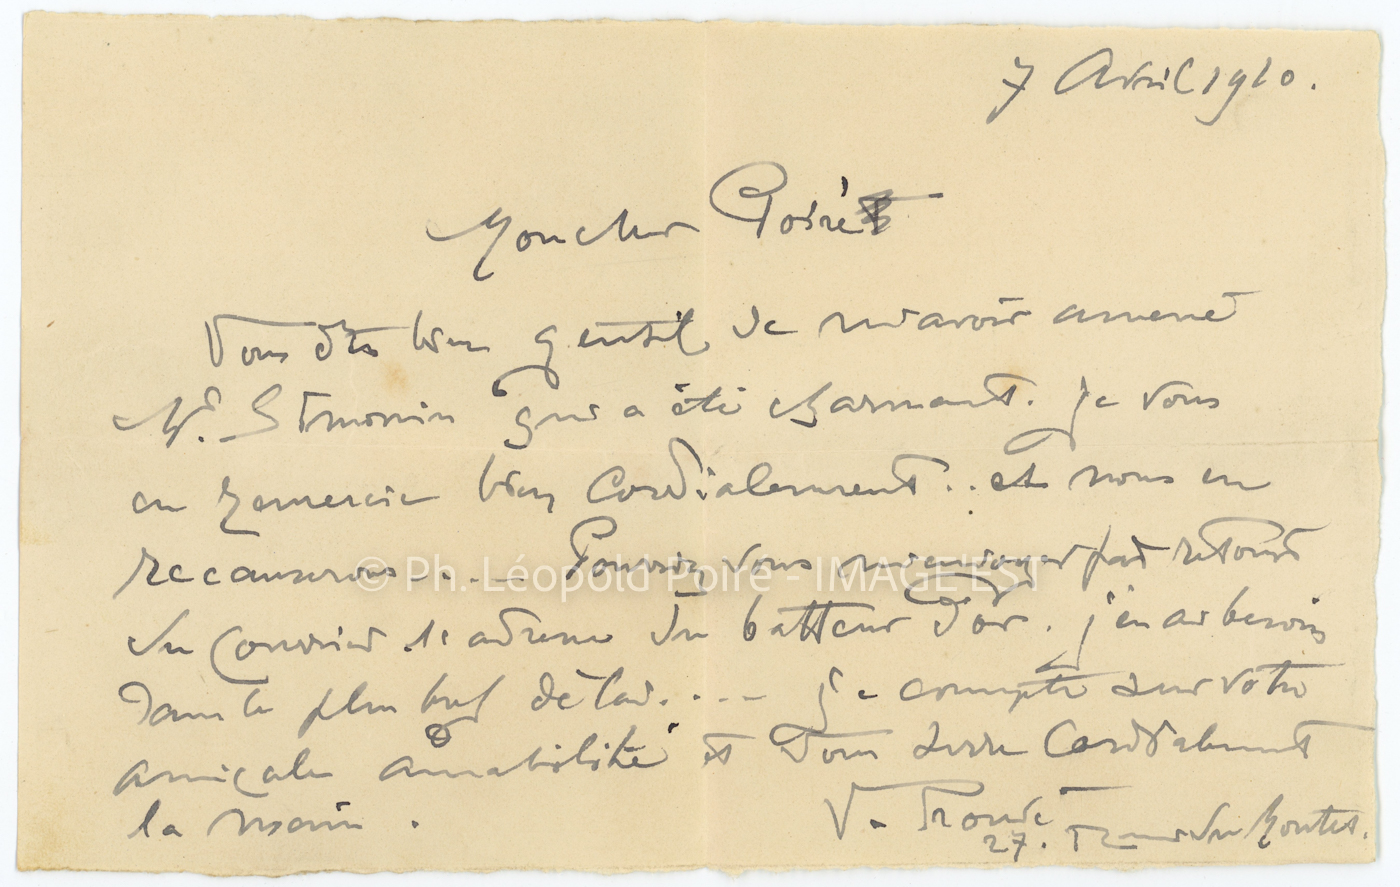 7 Avril 1910.
Mon cher Poiré
Vous êtes bien gentil de m'avoir amené
Mr. Simonin qui a été charmant. je vous
en remercie bien cordialement.. et nous en
recauserons..... Pourriez vous m'envoyer par retour
© Ph. Léopold Poiré - IMAGE'EST
du courrier l'adresse du batteur d'or. j'en ai besoin
dans le plus bref délai.... je compte sur votre
amicale amabilité et vous serre cordialement
la main.
V. Prouvé
27. du Montet.